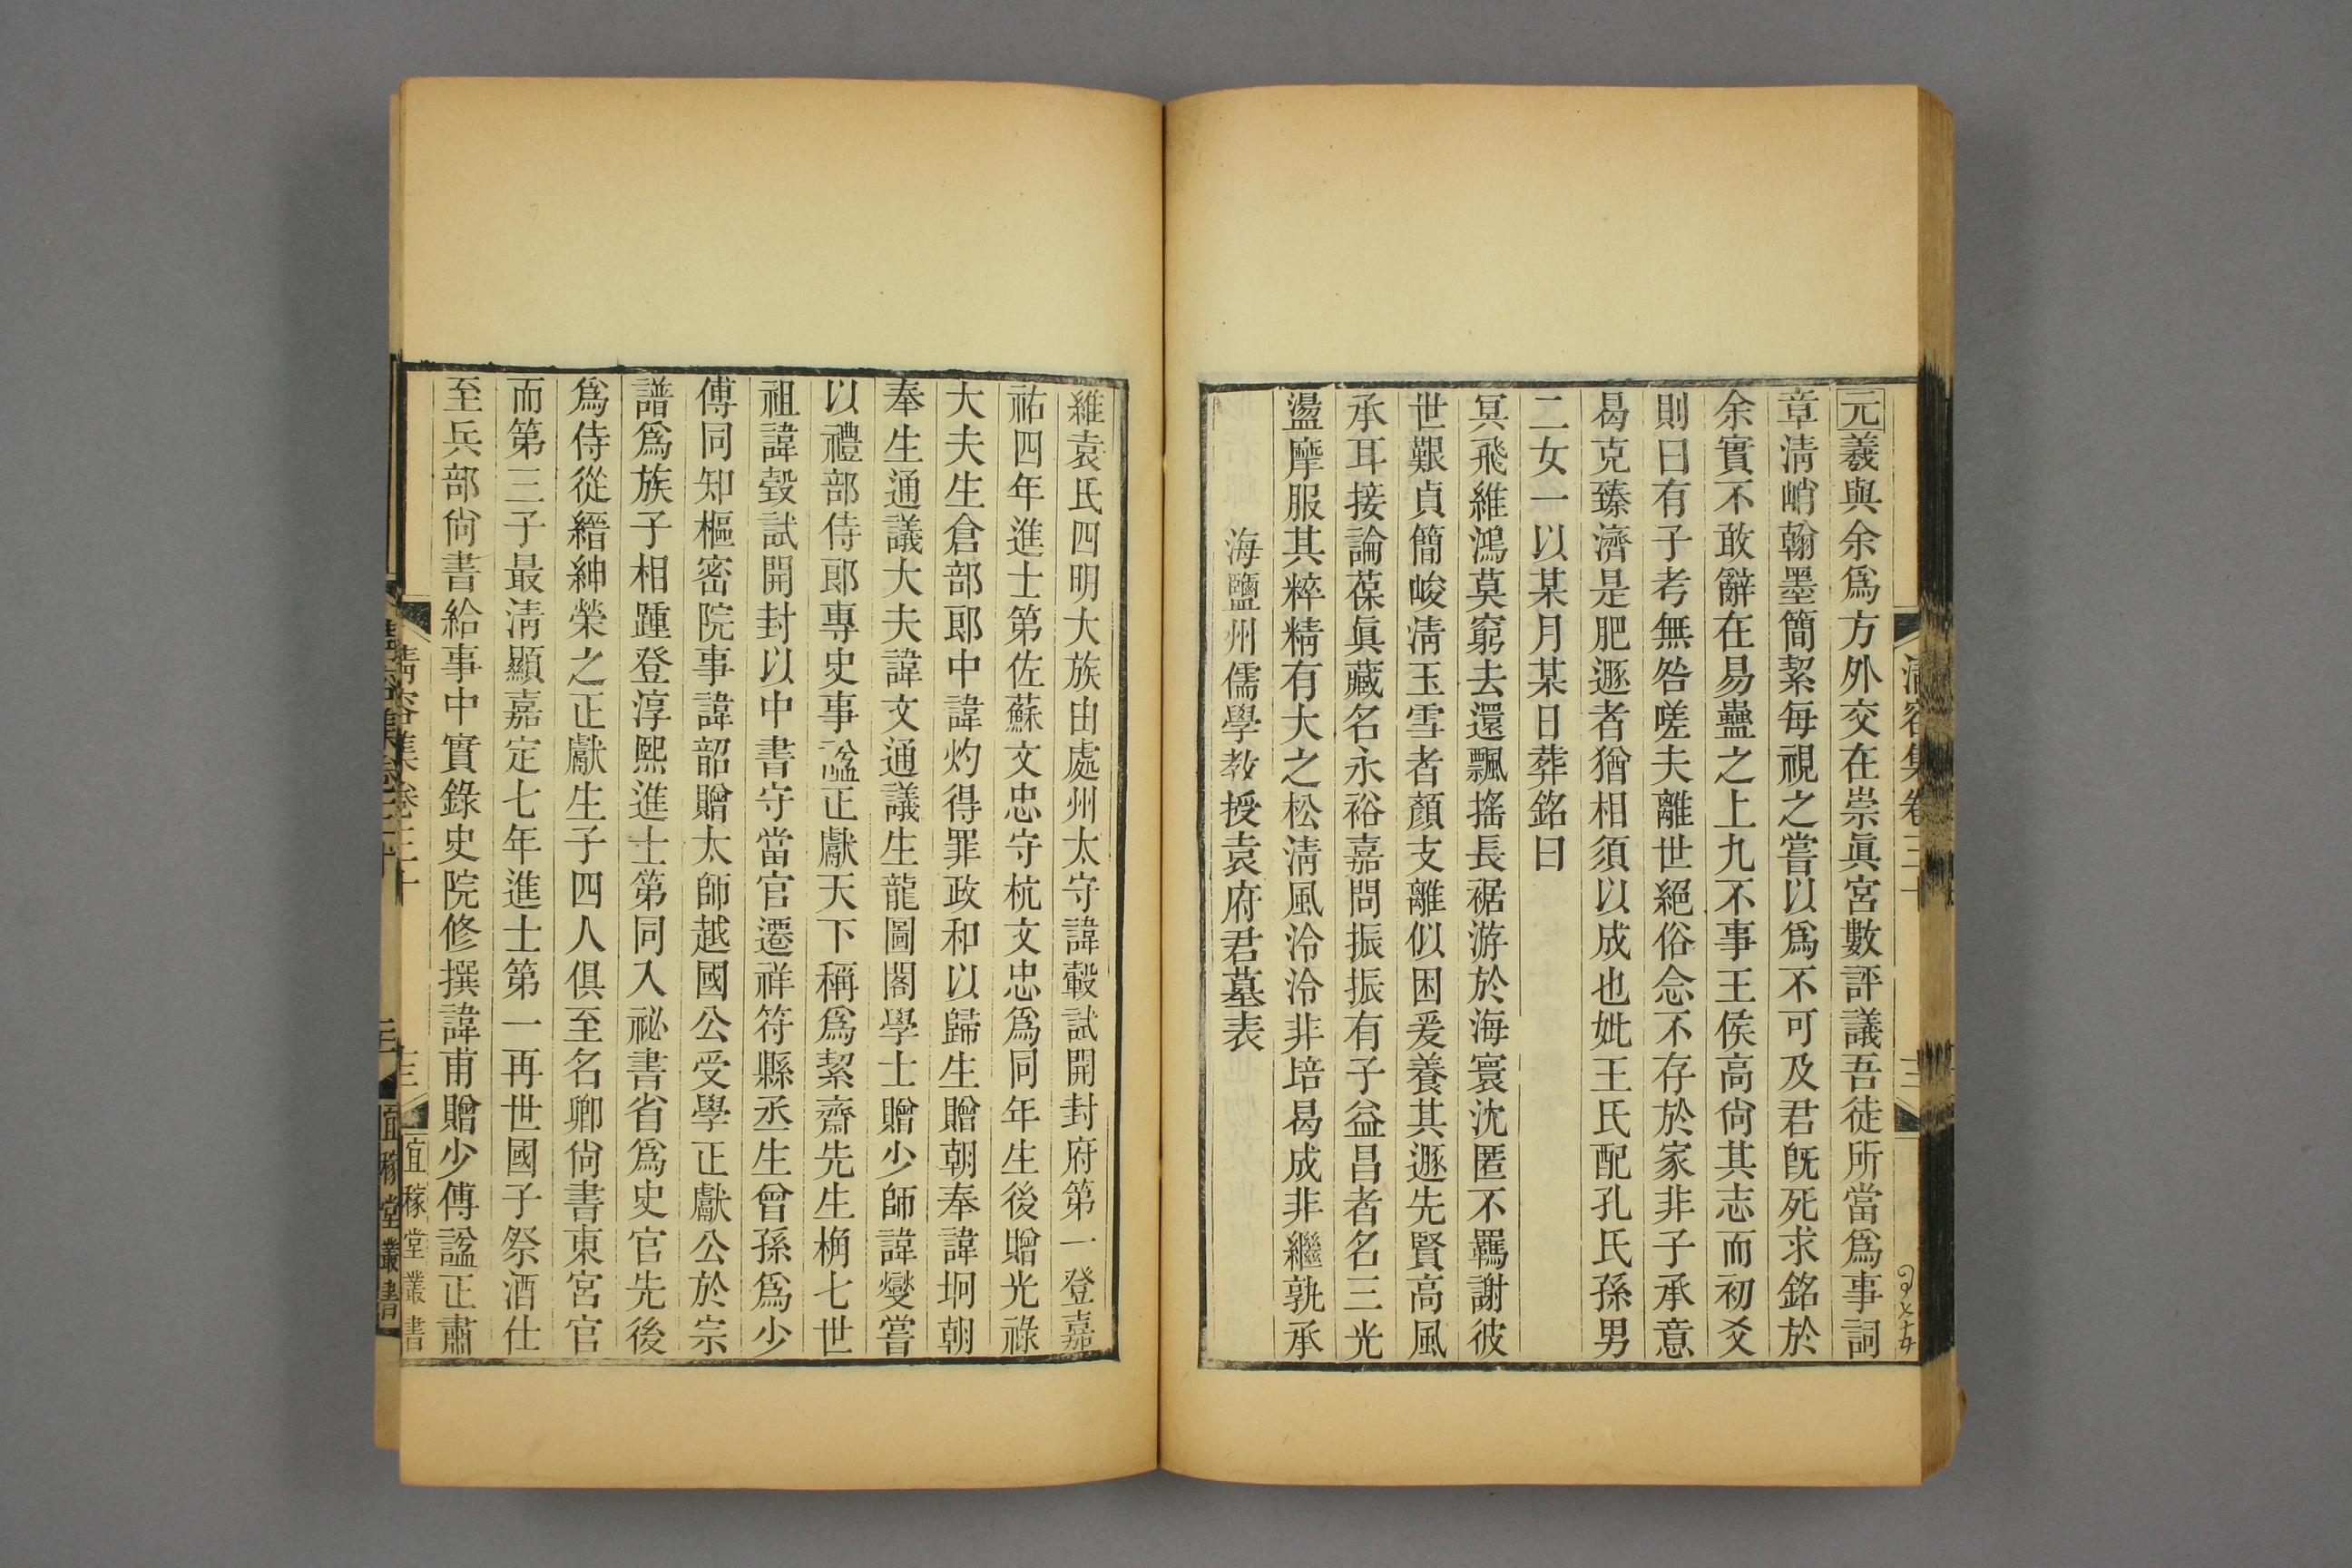 清容集卷三十
三
元羲與余爲方外交在崇眞宮數評議吾徒所當爲事詞
章淸峭翰墨簡絜每視之嘗以爲不可及君旣死求銘於
余實不敢辭在易蠱之上九不事王侯高尙其志而初爻
則曰有子考無咎嗟夫離世絕俗念不存於家非子承意
曷克臻濟是肥遯者猶相須以成也妣王氏配孔氏孫男
二女一以某月某日葬銘曰
冥飛維鴻莫窮去還飄搖長裾游於海寰沈匿不羈謝彼
世艱貞簡峻淸玉雪者顏支離似困爰養其遯先賢高風
承耳接論葆眞藏名永裕嘉問振振有子益昌者名三光
盪摩服其粹精有大之松淸風泠泠非培曷成非繼孰承
海鹽州儒學教授袁府君墓表
維袁氏四明大族由處州太守諱轂試開封府第一登嘉
祐四年進士第佐蘇文忠守杭文忠爲同年生後贈光祿
大夫生倉部郎中諱灼得罪政和以歸生贈朝奉諱坰朝
奉生通議大夫諱文通議生龍圖閣學士贈少師諱燮嘗
以禮部侍郎專史事諡正獻天下稱爲絜齋先生桷七世
祖諱瑴試開封以中書守當官遷祥符縣丞生曾孫爲少
傅同知樞密院事諱韶贈太師越國公受學正獻公於宗
譜爲族子相踵登淳熙進士第同入祕書省爲史官先後
爲侍從縉紳榮之正獻生子四人俱至名卿尙書東宮官
而第三子最淸顯嘉定七年進士第一再世國子祭酒仕
至兵部尙書給事中實錄史院修撰諱甫贈少傅諡正肅
清容集卷三十
三
宜稼堂叢書